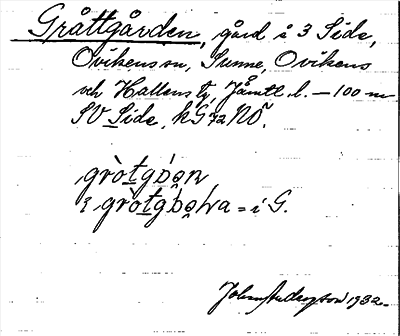 Gråttgården, gård i 3 Side,
Ovikens sn, Sunne, Ovikens
och Hallens tg, Jämtl. l. — 100 m
SV Side, kG72NÖ.
gròtgɒ́ən
ɪ gròtgɒ́əɴa = i G.
John Anderzson 1932.